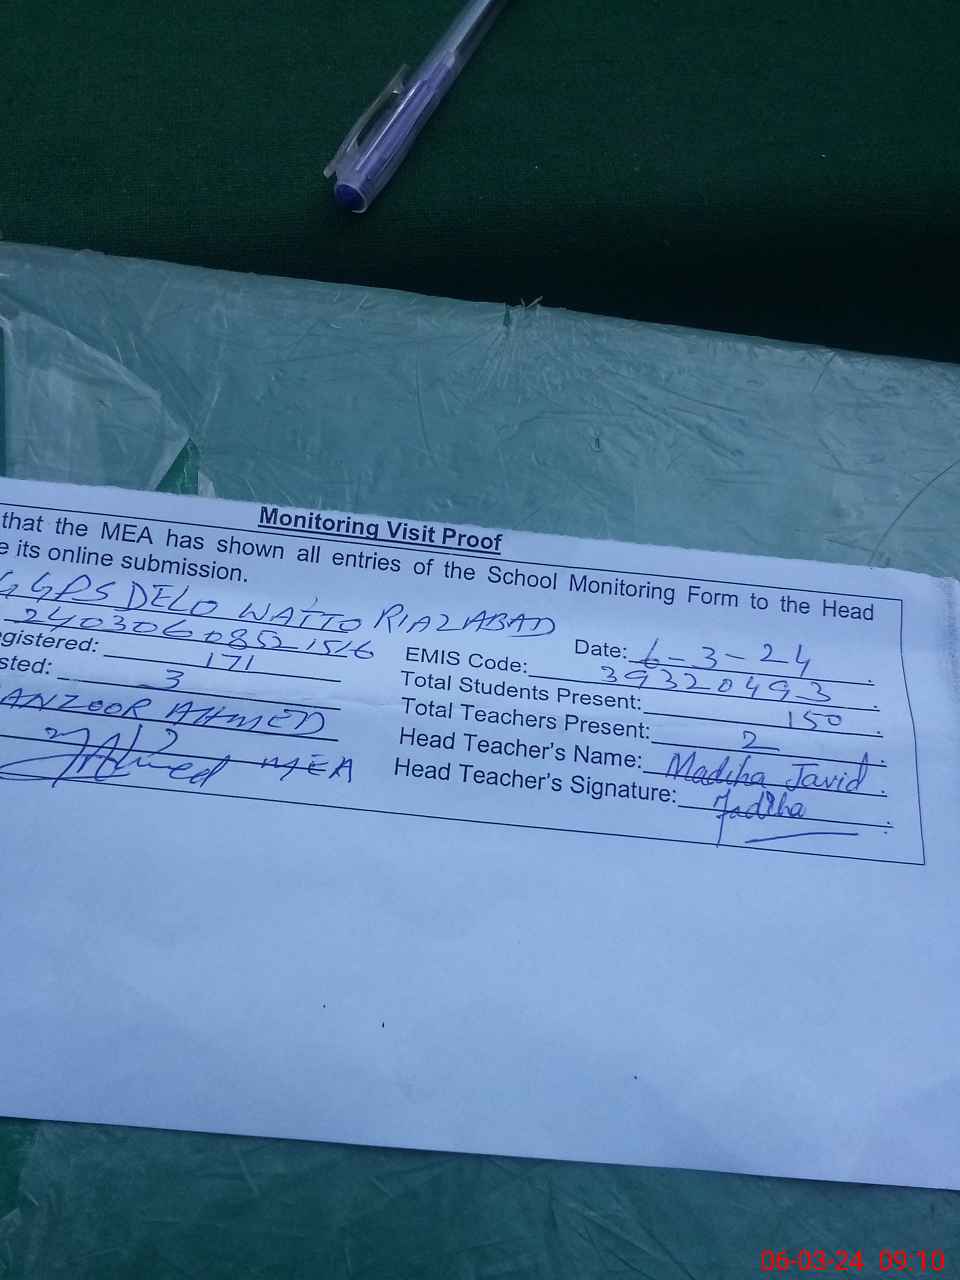 Monitoring Visit Proof
that the MEA has shown all entries of the School Monitoring Form to the Head
e its online submission.
GGPS DELO WATTO RIAZABAD
Date: 6-3-24
24030608521516
EMIS Code: 39320493
egistered: 171
Total Students Present: 150
sted: 3
Total Teachers Present: 2
ANZOOR AHMED
Head Teacher's Name: Madiha Javid
Ahmed MEA
Head Teacher's Signature: Madiha
06-03-24 09:10